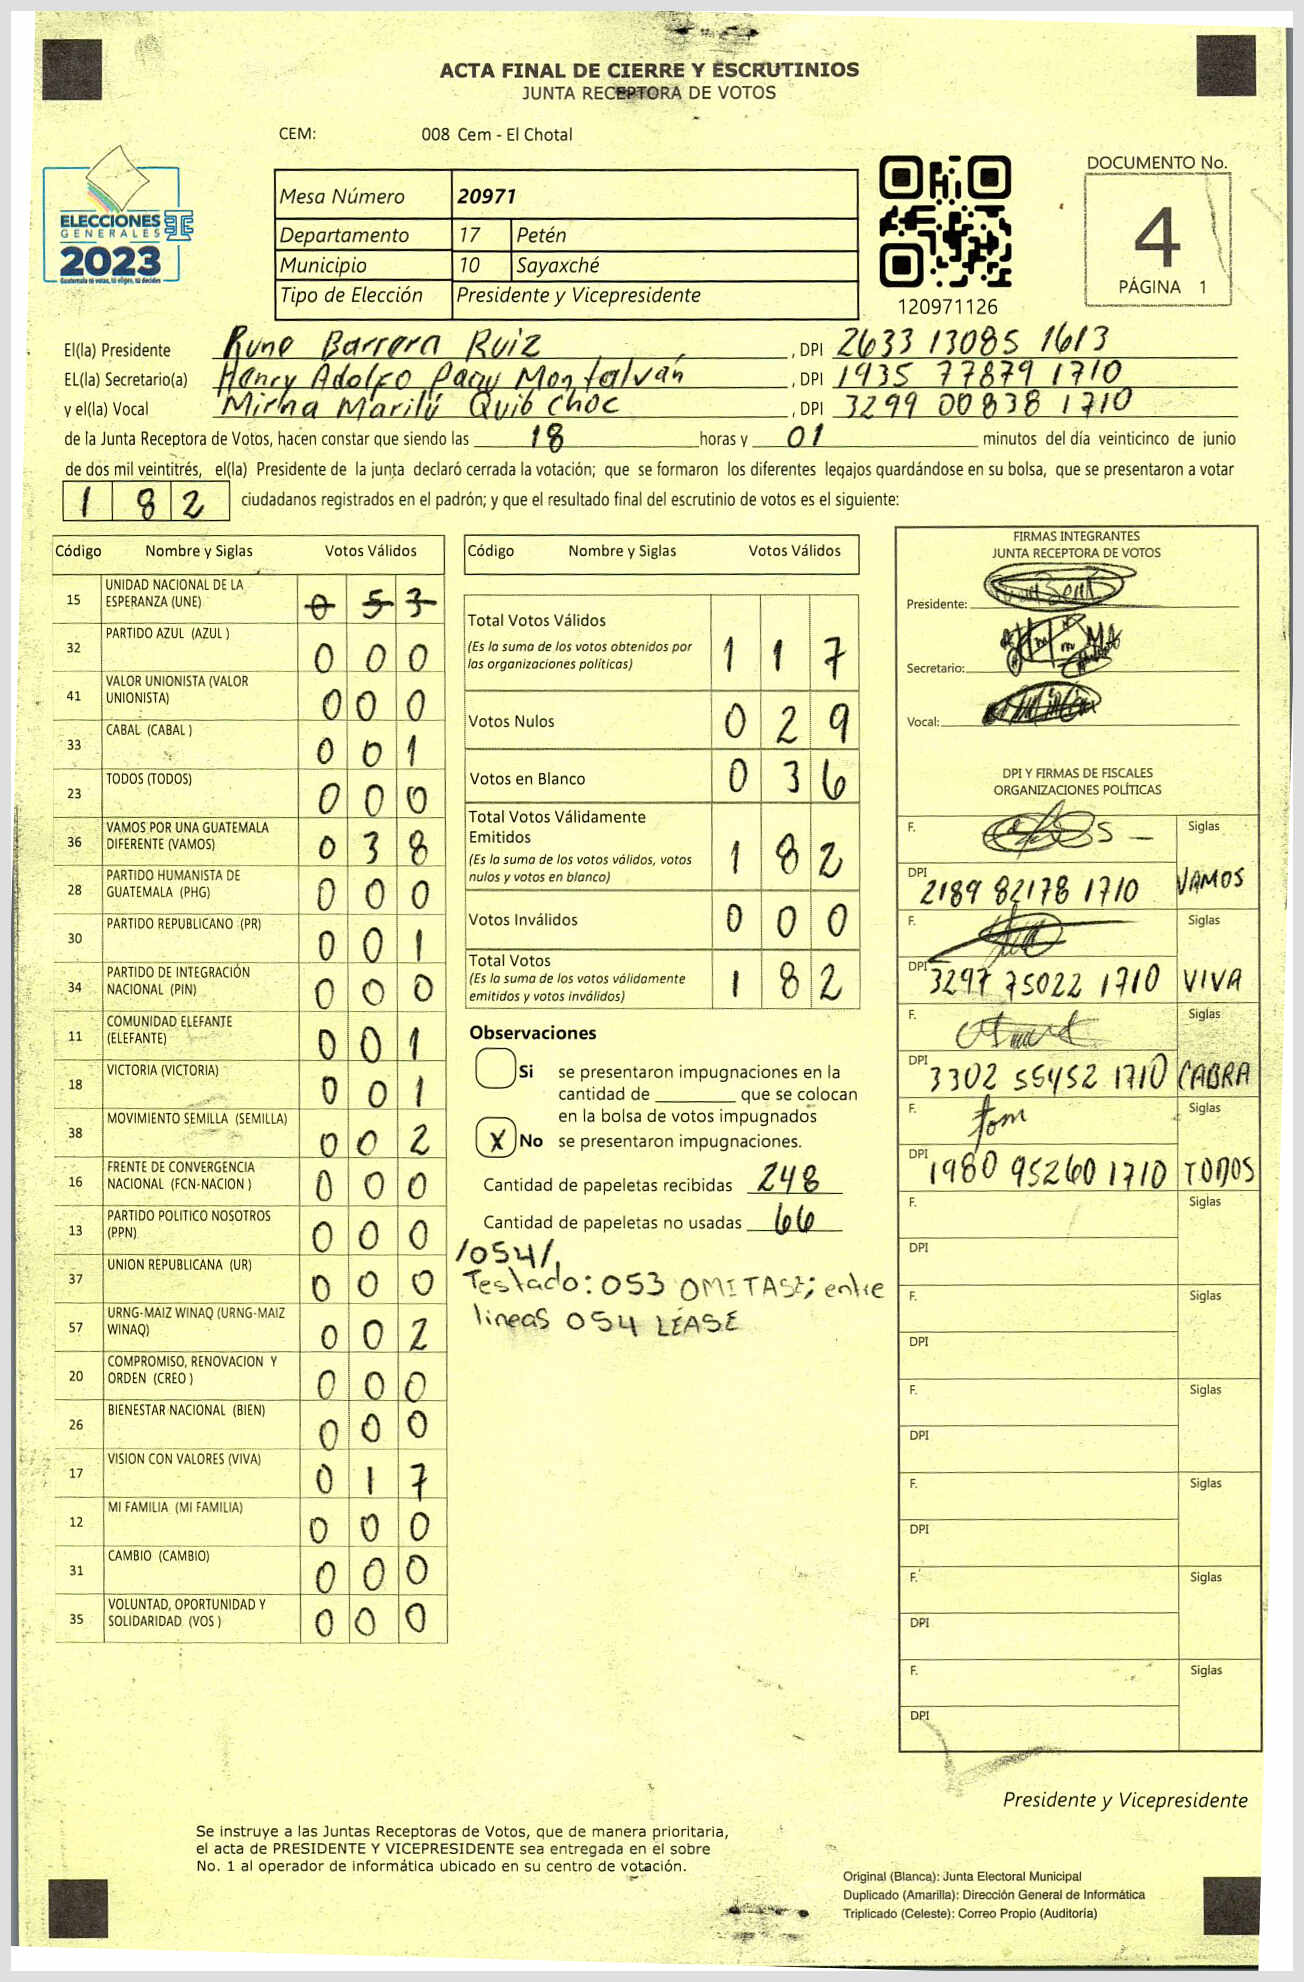 ACTA FINAL DE CIERRE Y ESCRUTINIOS
JUNTA RECEPTORA DE VOTOS
CEM: 008 Cem - El Chotal
ELECCIONES
GENERALES
2023
Guatemala tú votas, tú eliges, tú decides
Mesa Número 20971
Departamento 17 Petén
Municipio 10 Sayaxché
Tipo de Elección Presidente y Vicepresidente
120971126
DOCUMENTO No.
4
PÁGINA 1
El(la) Presidente Rune Barrera Ruiz , DPI 2633 13085 1613
EL(la) Secretario(a) Henry Adolfo Paau Montalván , DPI 1935 77879 1710
y el(la) Vocal Mirna Marilú Quib Choc , DPI 3299 00838 1710
de la Junta Receptora de Votos, hacen constar que siendo las 18 horas y 01 minutos del día veinticinco de junio
de dos mil veintitrés, el(la) Presidente de la junta declaró cerrada la votación; que se formaron los diferentes legajos guardándose en su bolsa, que se presentaron a votar
182 ciudadanos registrados en el padrón; y que el resultado final del escrutinio de votos es el siguiente:
Código Nombre y Siglas Votos Válidos
15 UNIDAD NACIONAL DE LA ESPERANZA (UNE) 0 5 3
32 PARTIDO AZUL (AZUL ) 0 0 0
41 VALOR UNIONISTA (VALOR UNIONISTA) 0 0 0
33 CABAL (CABAL ) 0 0 1
23 TODOS (TODOS) 0 0 0
36 VAMOS POR UNA GUATEMALA DIFERENTE (VAMOS) 0 3 8
28 PARTIDO HUMANISTA DE GUATEMALA (PHG) 0 0 0
30 PARTIDO REPUBLICANO (PR) 0 0 1
34 PARTIDO DE INTEGRACIÓN NACIONAL (PIN) 0 0 0
11 COMUNIDAD ELEFANTE (ELEFANTE) 0 0 1
18 VICTORIA (VICTORIA) 0 0 1
38 MOVIMIENTO SEMILLA (SEMILLA) 0 0 2
16 FRENTE DE CONVERGENCIA NACIONAL (FCN-NACION ) 0 0 0
13 PARTIDO POLITICO NOSOTROS (PPN) 0 0 0
37 UNION REPUBLICANA (UR) 0 0 0
57 URNG-MAIZ WINAQ (URNG-MAIZ WINAQ) 0 0 2
20 COMPROMISO, RENOVACION Y ORDEN (CREO ) 0 0 0
26 BIENESTAR NACIONAL (BIEN) 0 0 0
17 VISION CON VALORES (VIVA) 0 1 7
12 MI FAMILIA (MI FAMILIA) 0 0 0
31 CAMBIO (CAMBIO) 0 0 0
35 VOLUNTAD, OPORTUNIDAD Y SOLIDARIDAD (VOS ) 0 0 0
Código Nombre y Siglas Votos Válidos
Total Votos Válidos 1 1 7
(Es la suma de los votos obtenidos por
las organizaciones políticas)
Votos Nulos 0 2 9
Votos en Blanco 0 3 6
Total Votos Válidamente
Emitidos 1 8 2
(Es la suma de los votos válidos, votos
nulos y votos en blanco)
Votos Inválidos 0 0 0
Total Votos 1 8 2
(Es la suma de los votos válidamente
emitidos y votos inválidos)
Observaciones
Si se presentaron impugnaciones en la
cantidad de ________ que se colocan
en la bolsa de votos impugnados
X No se presentaron impugnaciones.
Cantidad de papeletas recibidas 248
Cantidad de papeletas no usadas 66
/054/,
Testado: 053 OMITASE; entre
lineas 054 LÉASE
FIRMAS INTEGRANTES
JUNTA RECEPTORA DE VOTOS
Presidente:
Secretario:
Vocal:
DPI Y FIRMAS DE FISCALES
ORGANIZACIONES POLÍTICAS
F. Siglas
DPI 2189 82178 1710 VAMOS
F. Siglas
DPI 3297 75022 1710 VIVA
F. Siglas
DPI 3302 55452 1710 CABRA
F. Tom Siglas
DPI 1980 95260 1710 TODOS
F. Siglas
DPI
F. Siglas
DPI
F. Siglas
DPI
F. Siglas
DPI
F. Siglas
DPI
F. Siglas
DPI
Presidente y Vicepresidente
Se instruye a las Juntas Receptoras de Votos, que de manera prioritaria,
el acta de PRESIDENTE Y VICEPRESIDENTE sea entregada en el sobre
No. 1 al operador de informática ubicado en su centro de votación.
Original (Blanca): Junta Electoral Municipal
Duplicado (Amarilla): Dirección General de Informática
Triplicado (Celeste): Correo Propio (Auditoría)